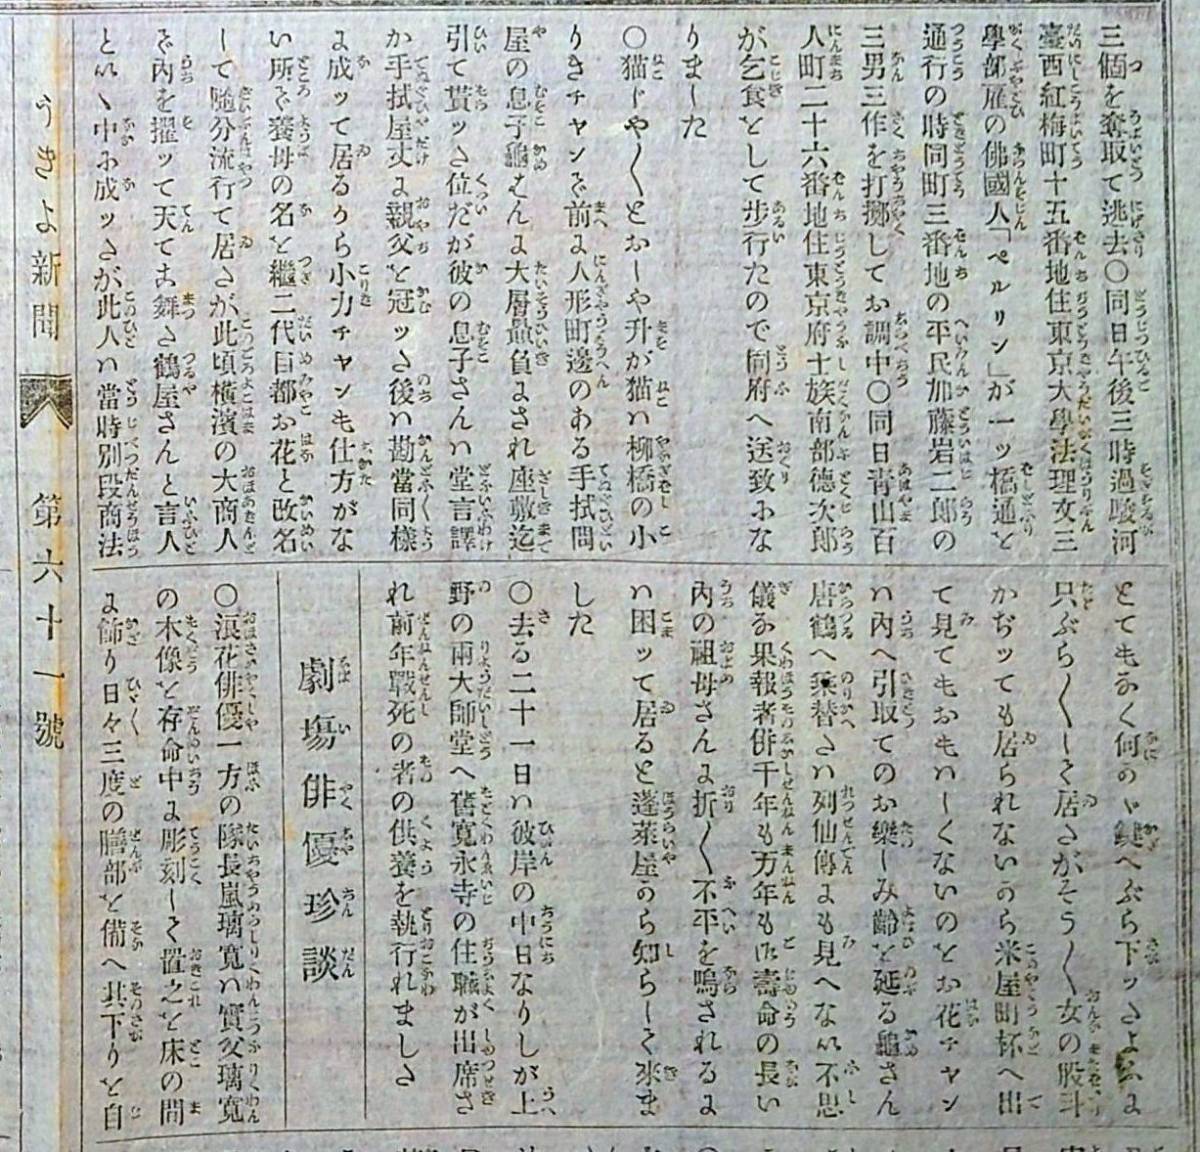 三個を奪取て逃去〇同日午後三時過駿河
臺西紅梅町十五番地住東京大學法理文三
學部雇の佛國人「ペルリン」が一ッ橋通を
通行の時同町三番地の平民加藤岩二郎の
三男三作を打擲してお調中〇同日青山百
人町二十六番地住東京府士族南部德次郎
が乞食をして歩行たので同府へ送致にな
りました
〇猫じや〱とおしや升が猫ハ柳橋の小
りきチヤンで前に人形町邊のある手拭問
屋の息子龜さんに大層贔負にされ座敷迄
引て貰ッた位だが彼の息子さんハ堂言譯
か手拭屋丈に親父を冠ッた後ハ勘當同様
に成ッて居るから小力チヤンも仕方がな
い所で養母の名を繼二代目都お花と改名
して隨分流行て居たが此頃横濱の大商人
で內を擢ッて天てお舞た鶴屋さんと言人
といゝ中に成ッたが此人ハ當時別段商法
とてもなく何かゝ鍵へぶら下ッたように
只ぶら〱して居たがそう〱女の股斗
かぢッても居られないから米屋町杯へ出
て見てもおもハしくないのをお花チヤン
ハ內へ引取てのお樂しみ齡を延る龜さん
唐鶴へ乘替たハ列仙傳にも見へない不思
儀な果報者俳千年も万年も此壽命の長い
內の祖母さんに折〱不平を鳴されるに
ハ困ッて居ると蓬萊屋から知らして來ま
した
〇去る二十一日ハ彼岸の中日なりしが上
野の兩大師堂へ舊寬永寺の住職が出席さ
れ前年戰死の者の供養を執行れました
劇場俳優珍談
〇浪花俳優一方の隊長嵐璃寬ハ實父璃寬
の木像を存命中に彫刻して置之を床の間
に飾り日々三度の膳部を備へ其下りを自
うきよ新聞 第六十一號